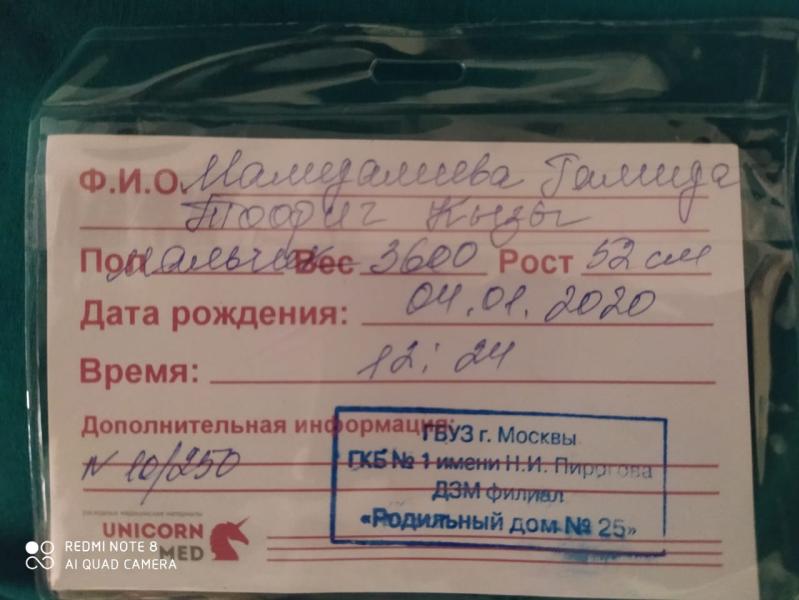 Ф.И.О. Мамедалиева Гамида
Тофиг Кызы
Пол мальчик Вес 3600 Рост 52 см
Дата рождения: 04.01.2020
Время: 12:24
Дополнительная информация:
N 10/250
ГБУЗ г. Москвы
ГКБ № 1 имени Н.И. Пирогова
ДЗМ филиал
«Родильный дом № 25»
UNICORN
MED
REDMI NOTE 8
AI QUAD CAMERA